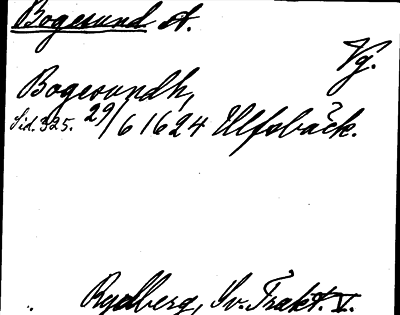 Bogesund st.
Vg.
Bogesundh,
Sid. 325. 29/6 1624 Ulfsbäck.
Rydberg, Sv. Trakt. V.